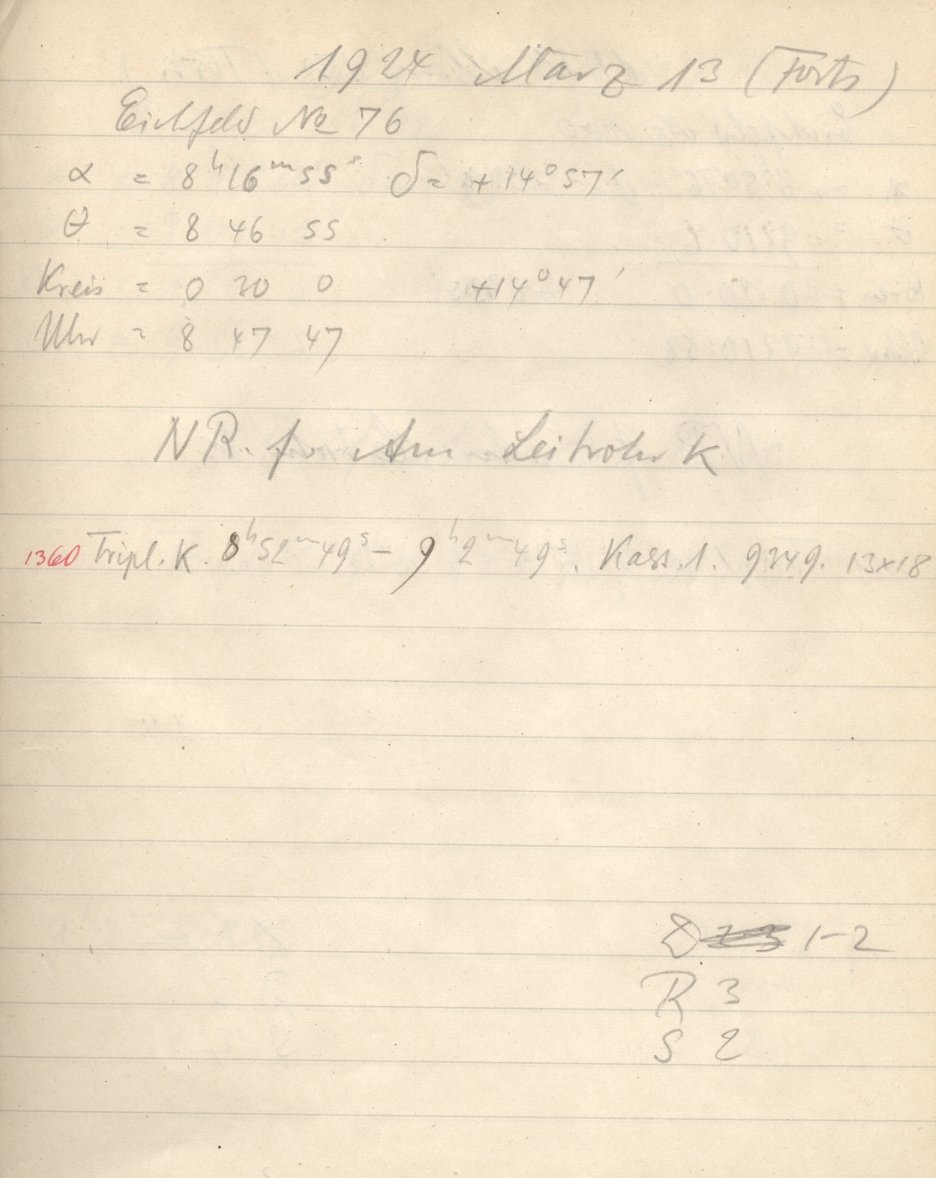 1924 März 13 (Forts)
Eichfeld No 76
α = 8ʰ16ᵐ55ˢ δ = +14°57′
θ = 8 46 55
Kreis = 0 30 0 +14°47′
Uhr = 8 47 47
NR. f. Am Leitrohr K
1360 Tripl. K. 8ʰ52ᵐ49ˢ – 9ʰ2ᵐ49ˢ. Kass. 1. 9249. 13×18
1–2
R 3
S 2